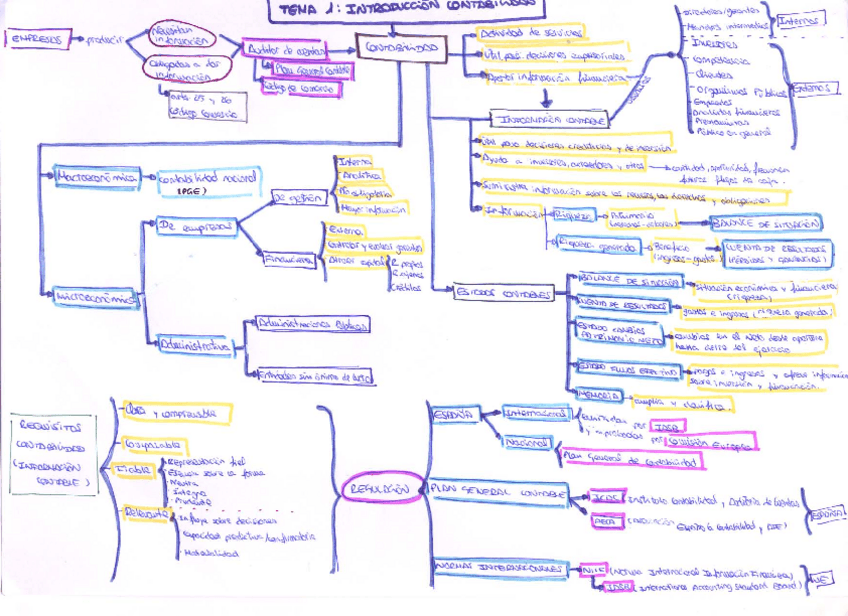 TEMA 1: INTRODUCCIÓN CONTABILIDAD
EMPRESAS
producir
Necesitan
información
Obligadas a dar
información
arts 25 y
Código Comercio
Auditor de cuentas
Plan General Contable
Código de Comercio
CONTABILIDAD
Actividad de servicios
Útil para decisiones empresariales
Aportar información financiera
usuarios
Internos
Inversores
Competencia
Clientes
- Organismos Públicos
- Empleados
Analistas financieros
- Prestamistas
- Público en general
Externos
INFORMACIÓN CONTABLE
Útil para decisiones crediticias y de inversión
Ayuda a inversores, acreedores y otros
cantidad, oportunidad,
futuros flujos de caja
Suministra información sobre los recursos, los derechos y obligaciones
Información
Riqueza
Patrimonio
BALANCE DE SITUACIÓN
Riqueza generada
Beneficio
(ingresos-gastos)
CUENTA DE RESULTADOS
(PÉRDIDAS Y GANANCIAS)
Macroeconómica
Contabilidad nacional
(PGE)
Microeconómica
De empresas
De gestión
Interna
Analítica
No obligatoria
Mayor información
Financiera
Externa
Controlar y
R. propios
R. ajenos
Créditos
Administrativa
Administraciones Públicas
Entidades sin ánimo de lucro
ESTADOS CONTABLES
BALANCE DE SITUACIÓN
situación económica y financiera
(riqueza)
CUENTA DE RESULTADOS
gastos e ingresos (riqueza generada)
ESTADO CAMBIOS
PATRIMONIO NETO
cambios en el Neto desde apertura
hasta cierre del ejercicio
ESTADO FLUJOS EFECTIVO
pagos e ingresos y ofrece información
sobre inversión y financiación.
MEMORIA
amplía y clarifica.
REQUISITOS
CONTABILIDAD
(INFORMACIÓN
CONTABLE)
Clara y comprensible
Comparable
Fiable
Representación fiel
Esencia sobre la forma
- Neutra
- Íntegra
- Prudente
Relevante
Influye sobre decisiones
Capacidad predictiva/confirmatoria
- Materialidad
REGULACIÓN
ESPAÑA
Internacional
por IASB
y aprobadas por Comisión Europea
Nacional
Plan General de Contabilidad
PLAN GENERAL CONTABLE
ICAC (Instituto Contabilidad y Auditoría de Cuentas)
AECA (Asociación
Española Contabilidad y ADE)
ESPAÑA
NORMAS INTERNACIONALES
NIIF (Normas Internacional Información Financiera)
IASB (International Accounting Standard Board)
UE